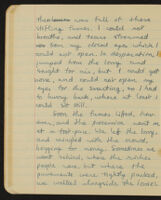 was full of these
stifling fumes. I could not
breathe, and tears streamed
from my closed eyes which I
could not open. In desperation I
jumped from the lorry and
fought for air, but I could get
none, and could not open my
eyes for the smarting, so I had
to hurry back, where at least I
could sit still.
Soon the fumes lifted, how-
ever, and the procession went on
at a foot-pace. We left the lorry
and walked with the crowd,
begging for money. Sometimes we
went behind, where the
people were, but where the
pavements were tightly packed,
we walked alongside the lorries